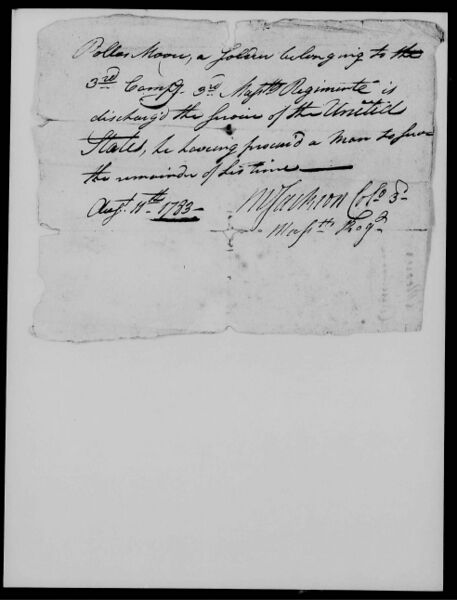 Pollas Moore, a Soldier belonging to the
3rd Compy. 3rd Masstts Regimente is
discharg'd the Service of the United
States, he having procur'd a Man to serve
the remainder of his time
Augt. 11th 1783 M Jackson Colo 3d
Massts Regt